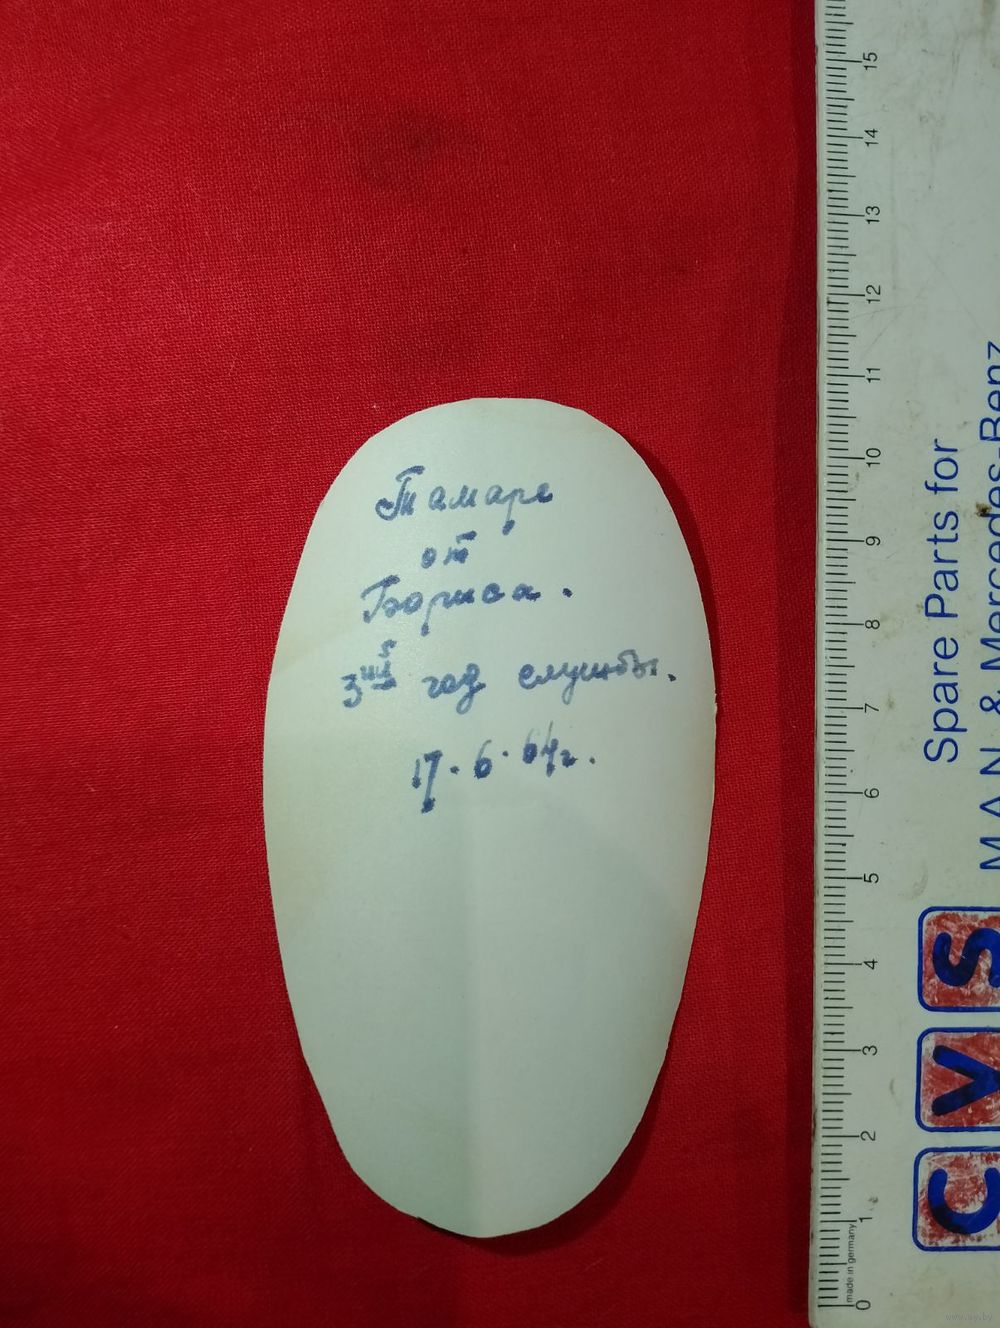 Тамаре
от
Бориса.
3ий год службы.
17.6.64г.
15
14
13
12
11
10
9
8
7
6
5
4
3
2
1
0
made in germany
Spare Parts for
M.A.N. & Mercedes-Benz
CVS
www.ay.by